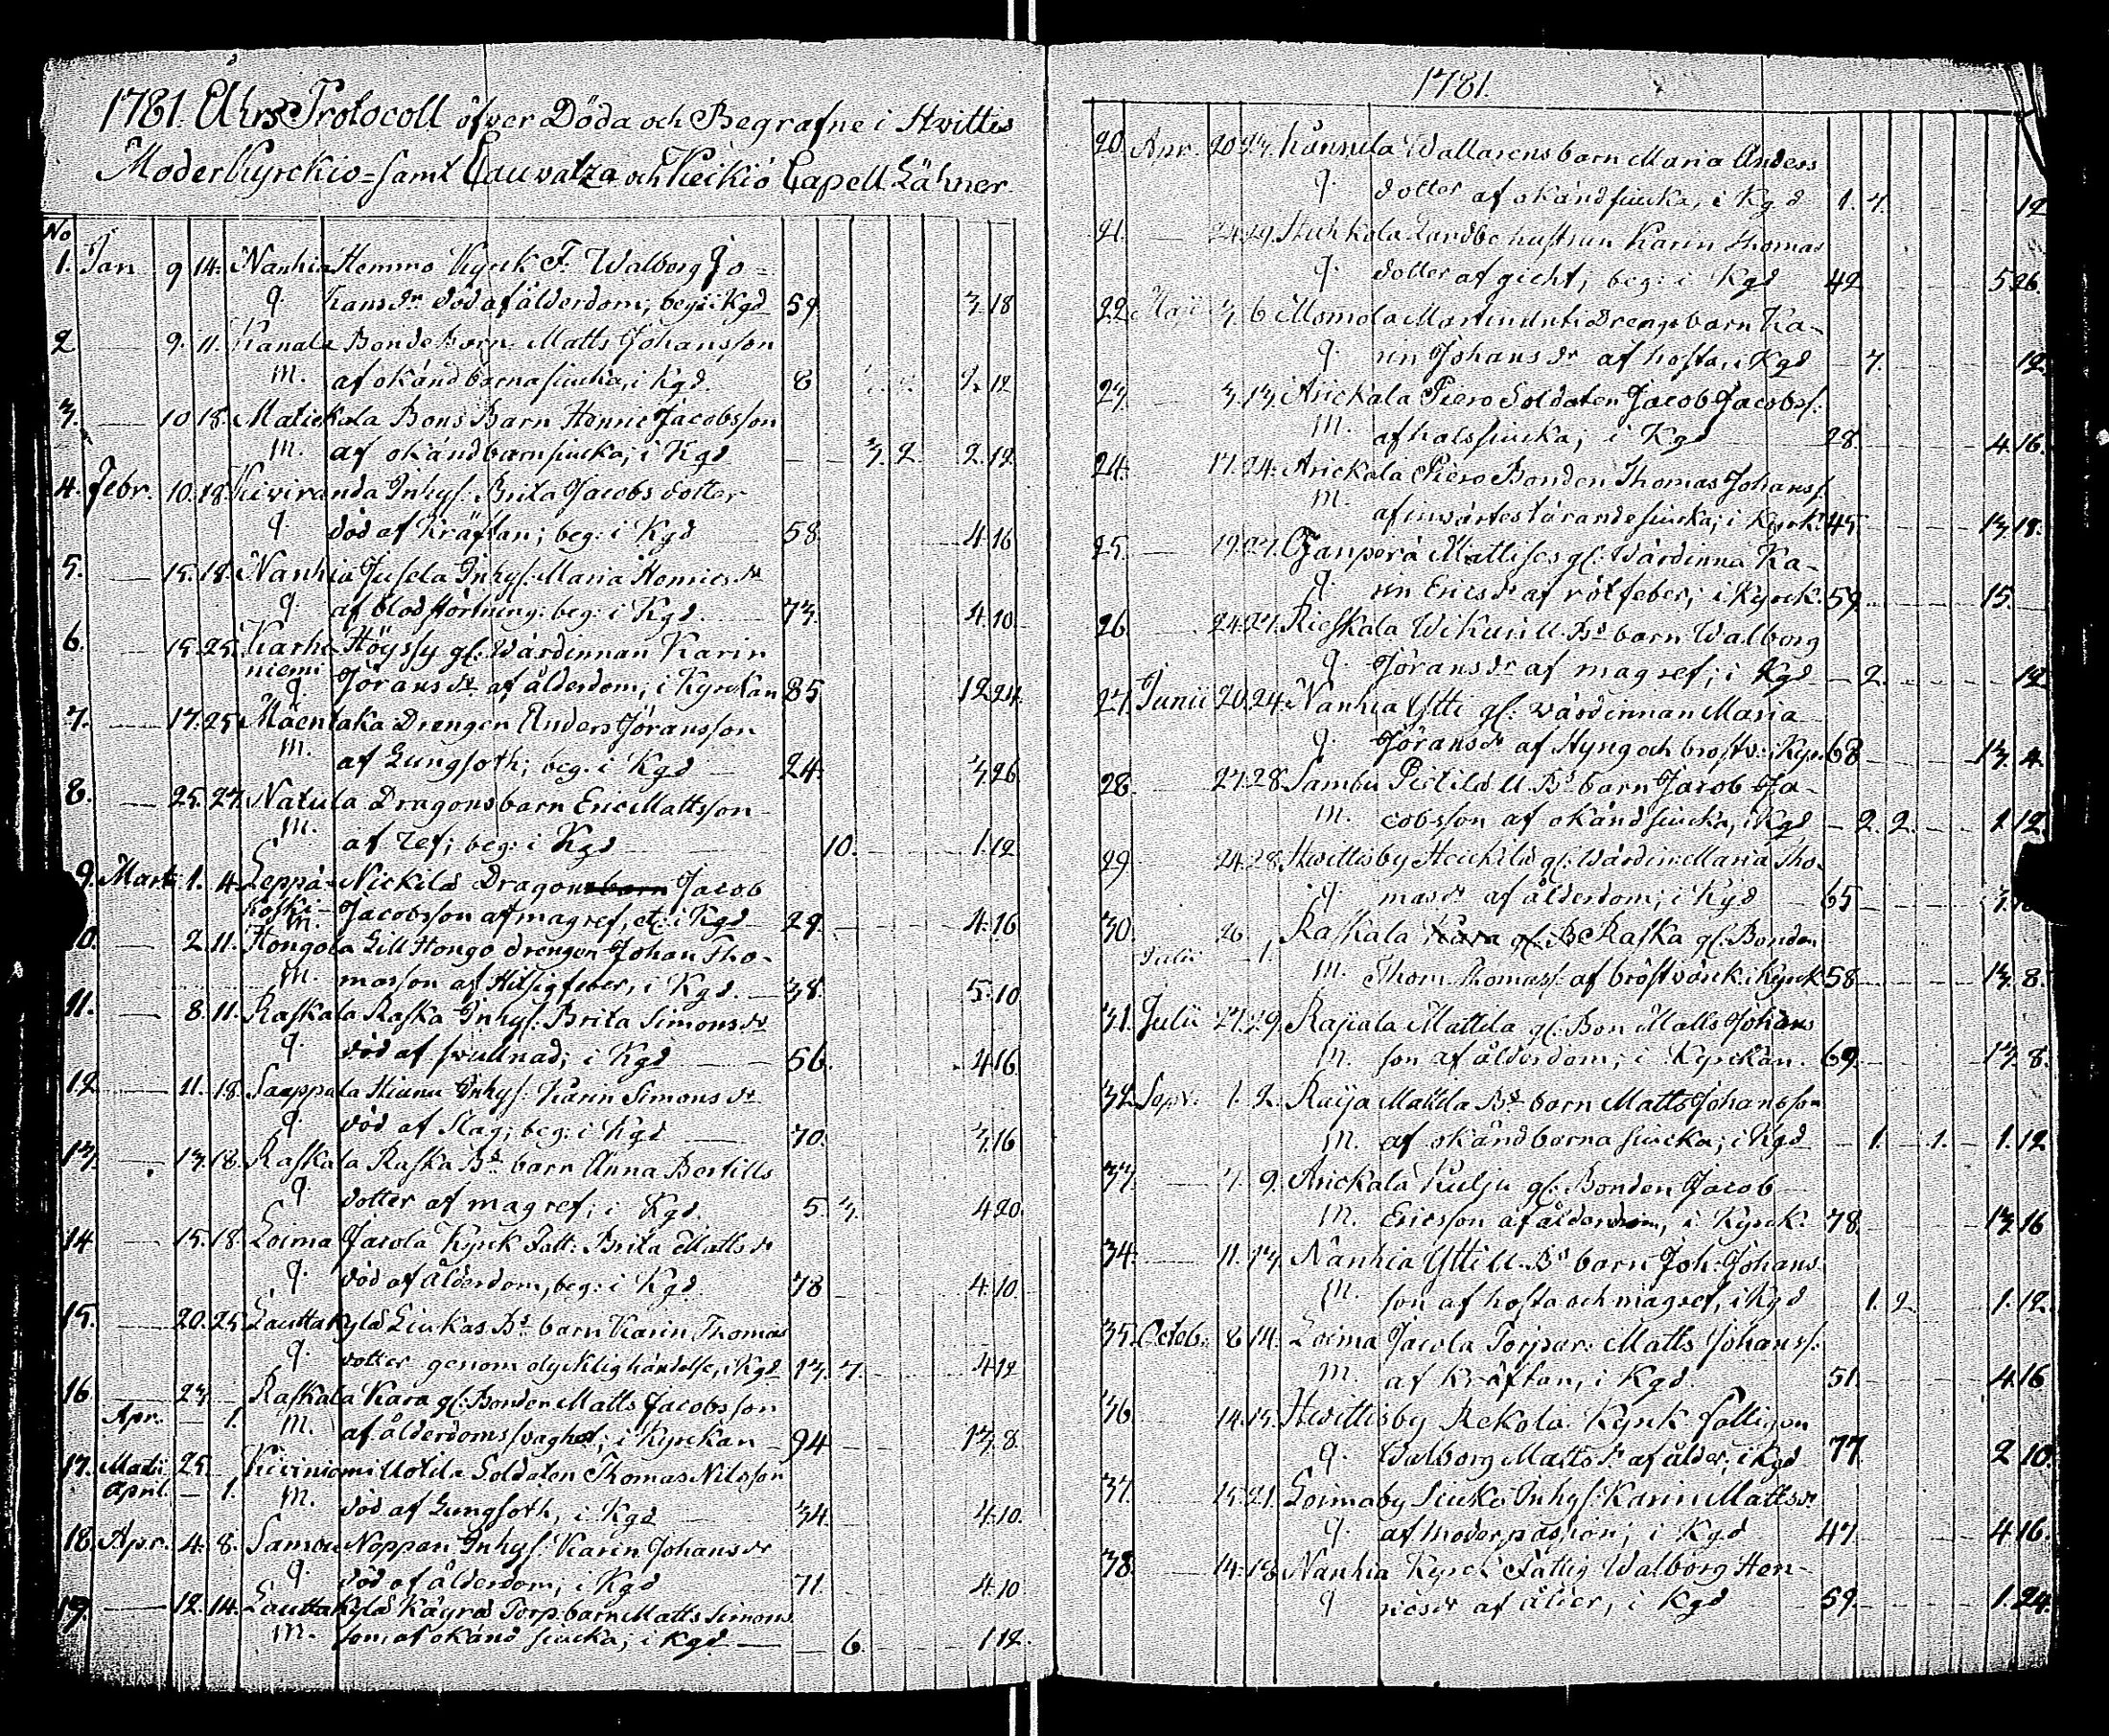 1781. Åhrs Protocoll öfver Döda och Begrafne i Hvittis
Moderkyrckio- samt Cauvatza och Keikiö Capell Lähner.
No
1. Jan 9 14. Nanhia Hemmo Kyrck F. Walborg Jo-
q. hans dr död af ålderdom; beg: i Kgd 59 3.18
2 9. 11. Kanala Bonde Barn Matts Johansson
m. af okänd barnasiucka, i Kgd. 8 2.12
3. 10 18. Matickala Bons Barn Henric Jacobsson
m. af okänd barnsiucka; i Kgd 3. 2. 2.12.
4. Febr. 10. 18. Kiviranda Inhys. Brita Jacobs dotter
q död af Kräftan; beg: i Kgd 58. 4.16
5. 15. 18. Nanhia Jusela Inhys. Maria Henrics dr
q. af blodstörtning: beg: i Kgd. 73. 4.10
6. 15. 25. Karhi- Höyssy gl. Wärdinnan Karin
niemi
q Jörans dr af ålderdom; i Kyrckan 85 12 24.
7. 17. 25. Maentaka Drengen Anders Jöransson
m. af Lungsoth; beg. i Kgd 24. 3.26.
8. 25. 27. Natula Dragons barn Eric Mattsson
m. af ref; beg: i Kgd 10. 1.12
9. Marti 1. 4. Leppä- Nickilä Dragon Jacob
koski- m. Jacobsson af magref, et: i Kgd 29. 4.16
10. 2. 11. Hongola Lill Hongo drengen Johan Tho-
m. masson af Hitsigfeber, i Kgd. 38. 5.10
11. 8. 11. Raskala Raska Inhys. Brita Simons dr
q. död af svullnad; i Kgd 56. 4.16
12 11. 18. Sauppala Inhys. Karin Simons dr
q. död af Slag; beg: i Kgd 70. 3.16
13. 13. 18. Raskala Raska Bd barn Anna Bertills
q. dotter af magref; i Kgd. 5. 3. 4.20.
14 15. 18. Loima Jacola Kyrck Fatt: Brita Matts dr
q. död af ålderdom, beg: i Kgd. 78 4.10
15. 20. 25. Lauttakylä Liukas Bd barn Karin Thomas
q. dotter genom olycklig händelse, i Kgd 13. 7. 4.12
16. 23 Raskala Kara gl. Bonden Matts Jacobsson
Apr. 1. m. af ålderdoms svaghet; i Kyrckan 94 13. 8.
17. Marti 25 Kiviniemi Uotila Soldaten Thomas Nilsson
April 1. m. död af Lungsoth, i Kgd 34. 4.10.
18. Apr. 4. 8. Samou Noppan Inhys. Karin Johans dr
q. död af ålderdom; i Kgd 71. 4.10
19. 12. 14. Lauttakylä Käyrä Torp. barn Matts Simons
m. son, af okänd siucka; i Kgd. 6. 1.12.
1781.
20. Apr. 20. 23. Wallarens barn Maria Anders
q. dotter af okänd siucka, i Kgd 1. 7. 12
21. 24. 29. Huhkola Landbo hustrun Karin Thomas
q. dotter af gicht, beg: i Kgd 42 5 26.
22 Maji 3. 6 Momola Drengs barn Ka-
q. rin Johans dr af hosta, i Kgd 7. 12.
23. 3. 13. Arickala Piero Soldaten Jacob Jacobss:
m. af halssiucka; i Kgd 28. 4.16.
24. 17. 24. Arickala Piero Bonden Thomas Johanss:
m. af invärtes tärande siucka; i Kyrk: 45. 13.18.
25. 19. 27. Mattises gl. Wärdinna Ka-
q. rin Erics dr af rötfeber; i Kyrck. 59. 15.
26. 24. 27. Rieskala Wikari U. Bd barn Walborg
q. Jörans dr af magref; i Kgd 2. 12
27. Junii 20. 24. Nanhia Ytti gl: wärdinnan Maria
q. Jörans dr af Styng och bröstv: i Kyr. 68 13. 4.
28. 27. 28. Sambu Pietilä U. Bd barn Jacob Ja-
m. cobsson af okänd siucka, i Kgd 2. 2. 1 12.
29 24. 28. Hvittisby Heickilä gl. Wärdin: Maria Tho-
q. mas dr af ålderdom; i Kgd 65
30. 26 Raskala Raska gl. Bonden
Julii 1. m. Thom. Thomass: af bröstvärck i Kyrck 58 13. 8.
31. Julii 27. 29. Rajiala Mattila gl. Bon Matts Johans
m. son af ålderdom; i Kyrckan. 69. 13. 8.
32. Sept. 1. 2. Raija Mattila Bd barn Matts Johansson
m. af okänd barna siucka; i Kgd 1. 1. 1.12
33. 7. 9. Arickala Kulju gl. Bonden Jacob
m. Ericsson af ålderdom, i Kyrck: 78. 13.16
34. 11. 13. Nanhia Ytti U. Bd barn Joh: Johans
m. son af hosta och magref, i Kgd 1. 2. 1.12.
35. Octob: 8 14. Loima Jacola Torpar: Matts Johanss:
m. af Kräftan, i Kgd. 51. 4.16
36. 14. 15. Hvittisby Rekola Kyrck fattigen
q. Walborg Matts dr af ålder, i Kgd 77. 2 10.
37. 15. 21. Loimaby Siuko Inhys. Karin Matts dr
q. af moderpassion; i Kgd 47. 4 16.
38. 14. 18 Nanhia Kyrck Fattig Walborg Hen-
q rics dr af ålder, i Kgd 59. 1.24.